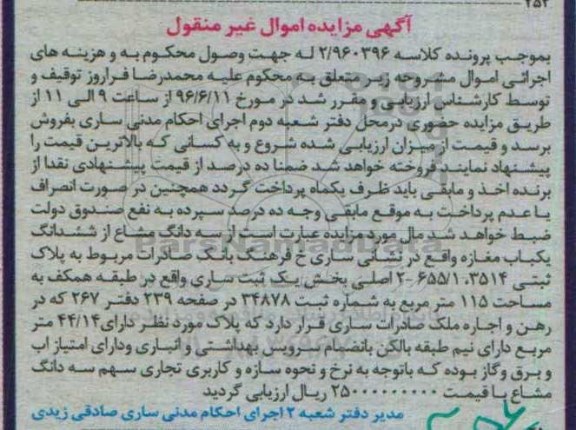 ۲۵۲
آگهی مزایده اموال غیر منقول
بموجب پرونده کلاسه ۲/۹۶۰۳۹۶ له جهت وصول محکوم به و هزینه های
اجرائی اموال مشروحه زیر متعلق به محکوم علیه محمدرضا فراروز توقیف و
توسط کارشناس ارزیابی و مقرر شد در مورخ ۹۶/۶/۱۱ از ساعت ۹ الی ۱۱ از
طریق مزایده حضوری درمحل دفتر شعبه دوم اجرای احکام مدنی ساری بفروش
برسد و قیمت از میزان ارزیابی شده شروع و به کسانی که بالاترین قیمت را
پیشنهاد نمایند فروخته خواهد شد ضمنا ده درصد از قیمت پیشنهادی نقدا از
برنده اخذ و مابقی باید ظرف یکماه پرداخت گردد همچنین در صورت انصراف
یا عدم پرداخت به موقع مابقی وجه ده درصد سپرده به نفع صندوق دولت
ضبط خواهد شد مال مورد مزایده عبارت است از سه دانگ مشاع از ششدانگ
یکباب مغازه واقع در نشانی ساری خ فرهنگ بانک صادرات مربوط به پلاک
ثبتی ۶۵۵/۱۰۳۵۱۴-۲ اصلی بخش یک ثبت ساری واقع در طبقه همکف به
مساحت ۱۱۵ متر مربع به شماره ثبت ۳۴۸۷۸ در صفحه ۲۳۹ دفتر ۲۶۷ که در
رهن و اجاره ملک صادرات ساری قرار دارد که پلاک مورد نظر دارای ۴۴/۱۴ متر
مربع دارای نیم طبقه بالکن بانضمام سرویس بهداشتی و انباری ودارای امتیاز اب
و برق وگاز بوده که باتوجه به نرخ و نحوه سازه و کاربری تجاری سهم سه دانگ
مشاع با قیمت ۲۵۰۰۰۰۰۰۰۰۰ ریال ارزیابی گردید
مدیر دفتر شعبه ۲ اجرای احکام مدنی ساری صادقی زیدی
ParsNamadData